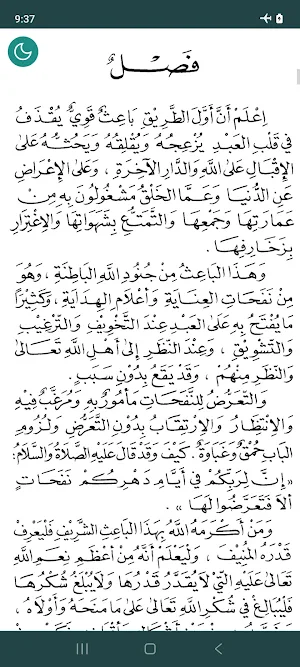 9:37
فَصْلٌ
اِعْلَمْ أَنَّ أَوَّلَ الطَّرِيْقِ بَاعِثٌ قَوِيٌّ يُقْذَفُ
فِي قَلْبِ الْعَبْدِ يُزْعِجُهُ وَيُقْلِقُهُ وَيَحُثُّهُ عَلَى
الإِقْبَالِ عَلَى اللَّهِ وَالدَّارِ الآخِرَةِ ، وَعَلَى الإِعْرَاضِ
عَنِ الدُّنْيَا وَعَمَّا الْخَلْقُ مَشْغُولُونَ بِهِ مِنْ
عِمَارَتِهَا وَجَمْعِهَا وَالتَّمَتُّعِ بِشَهَوَاتِهَا وَالاِغْتِرَارِ
بِزَخَارِفِهَا .
وَهَذَا الْبَاعِثُ مِنْ جُنُودِ اللَّهِ الْبَاطِنَةِ ، وَهُوَ
مِنْ نَفَحَاتِ الْعِنَايَةِ وَأَعْلَامِ الْهِدَايَةِ ، وَكَثِيْرًا
مَا يُفْتَحُ بِهِ عَلَى الْعَبْدِ عِنْدَ التَّخْوِيْفِ وَالتَّرْغِيْبِ
وَالتَّشْوِيْقِ ، وَعِنْدَ النَّظَرِ إِلَى أَهْلِ اللَّهِ تَعَالَى
وَالنَّظَرِ مِنْهُمْ ، وَقَدْ يَقَعُ بِدُوْنِ سَبَبٍ .
وَالتَّعَرُّضُ لِلنَّفَحَاتِ مَأْمُوْرٌ بِهِ وَمُرَغَّبٌ فِيْهِ
وَالاِنْتِظَارُ وَالاِرْتِقَابُ بِدُوْنِ التَّعَرُّضِ وَلُزُوْمِ
الْبَابِ حُمْقٌ وَغَبَاوَةٌ. كَيْفَ وَقَدْ قَالَ عَلَيْهِ الصَّلَاةُ وَالسَّلَامُ:
«إِنَّ لِرَبِّكُمْ فِي أَيَّامِ دَهْرِكُمْ نَفَحَاتٍ
أَلاَ فَتَعَرَّضُوا لَهَا » .
وَمَنْ أَكْرَمَهُ اللَّهُ بِهَذَا الْبَاعِثِ الشَّرِيْفِ فَلْيَعْرِفْ
قَدْرَهُ الْمُنِيْفَ ، وَلْيَعْلَمْ أَنَّهُ مِنْ أَعْظَمِ نِعَمِ اللَّهِ
تَعَالَى عَلَيْهِ الَّتِي لاَ يُقَدَّرُ قَدْرُهَا وَلاَ يُبْلَغُ شُكْرُهَا
فَلْيُبَالِغْ فِي شُكْرِ اللَّهِ تَعَالَى عَلَى مَا مَنَحَهُ وَأَوْلَاهُ ،